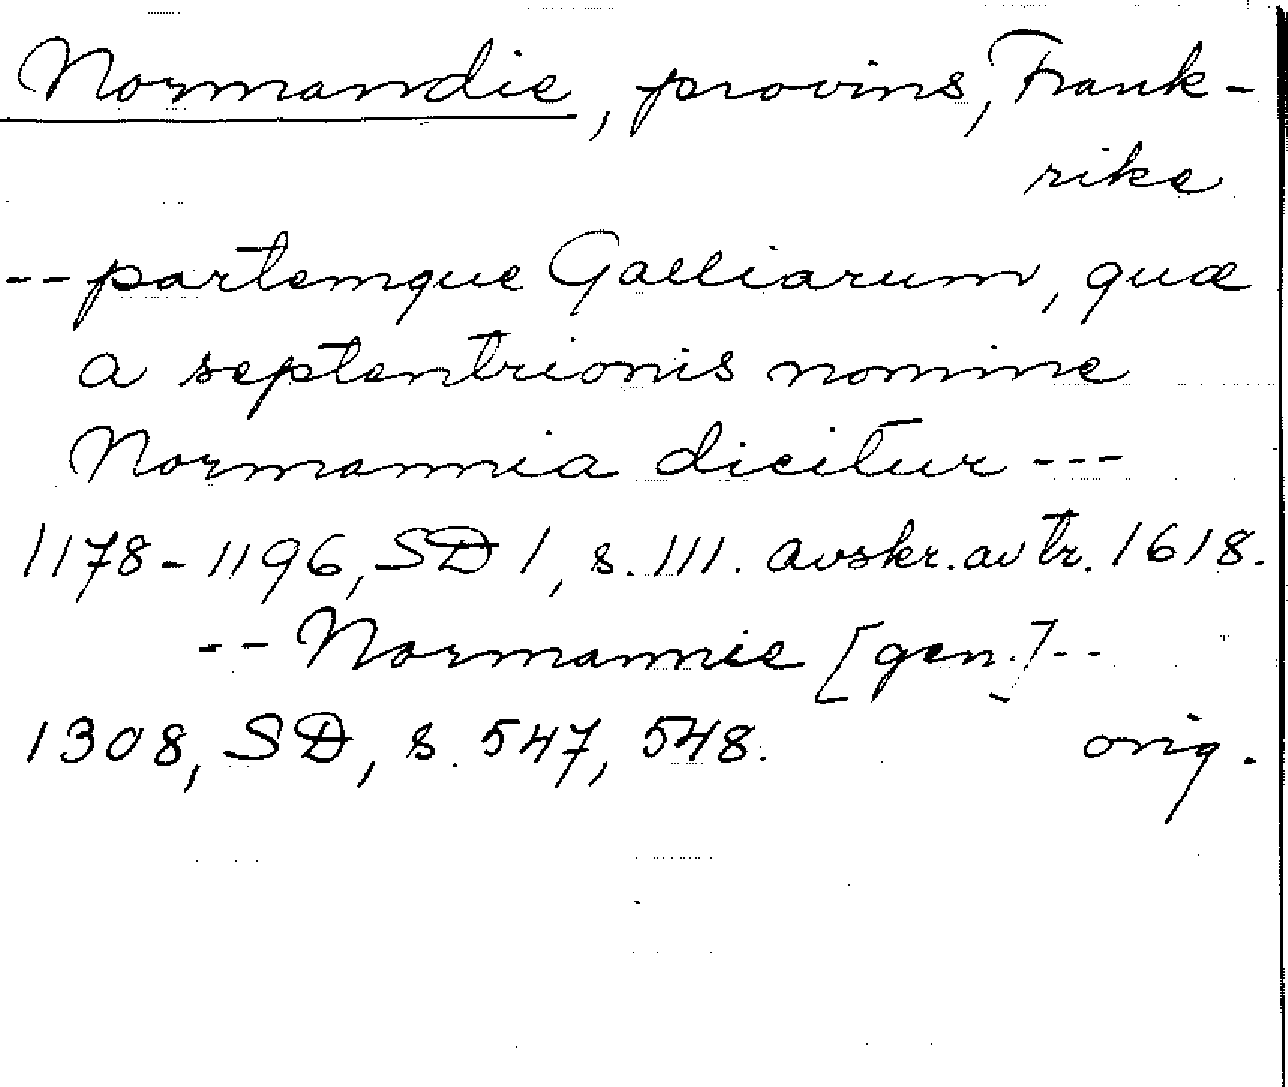 Normandie, provins, Frank-
rike
-- partemque Galliarum, quæ
a septentrionis nomine
Normannia dicitur ---
1178-1196, SD 1, s. 111. avskr. av tr. 1618.
-- Normannie [gen.] --
1308, SD, s. 547, 548. orig.